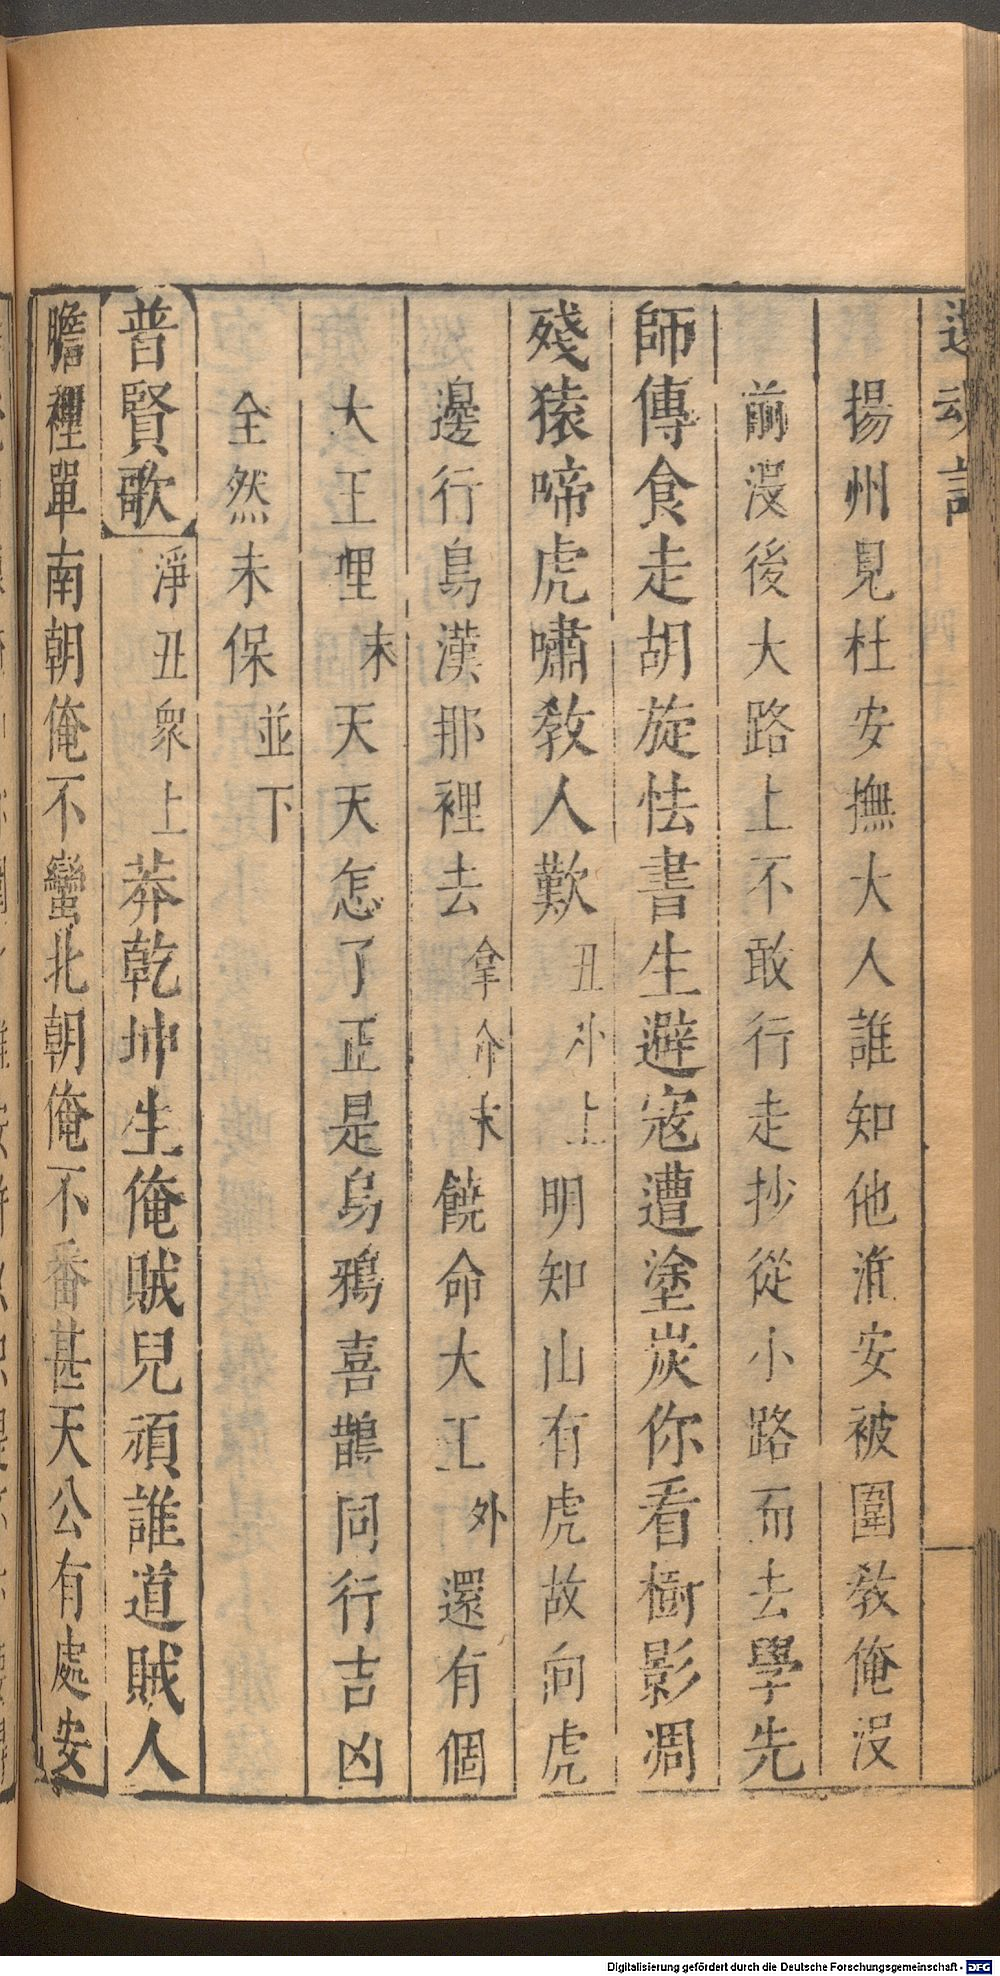 還魂記
揚州見杜安撫大人誰知他淮安被圍教俺没
前没後大路上不敢行走抄從小路而去學先
師傳食走胡旋怯書生避寇遭塗炭你看樹影凋
殘猿啼虎嘯教人歎丑外上明知山有虎故向虎
邊行鳥漢那裡去拿介末饒命大王外還有個
大王哩末天天怎了正是烏鴉喜鵲同行吉凶
全然未保並下
普賢歌淨丑衆上莽乾坤生俺賊兒頑誰道賊人
膽裡單南朝俺不蠻北朝俺不番甚天公有處安
Digitalisierung gefördert durch die Deutsche Forschungsgemeinschaft - DFG